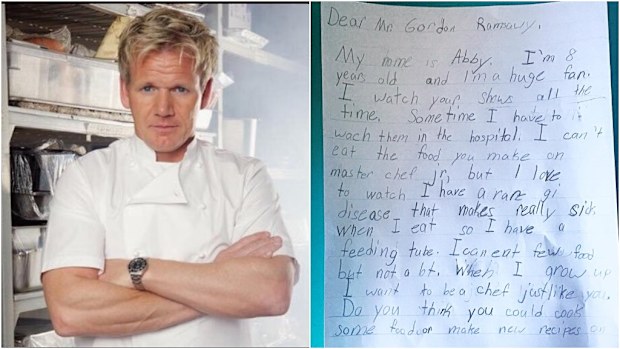 Dear Mr Gordon Ramsay,
My name is Abby. I'm 8
years old and I'm a huge fan.
I watch your shows all the
time. Sometime I have to
wach them in the hospital. I can't
eat the food you make on
master chef jr, but I love
to watch I have a rare gi
disease that makes really sick
when I eat so I have a
feeding tube. I can eat few food
but not a lot. When I grow up
I want to be a chef just like you.
Do you think you could cook
some food or make new recipes on